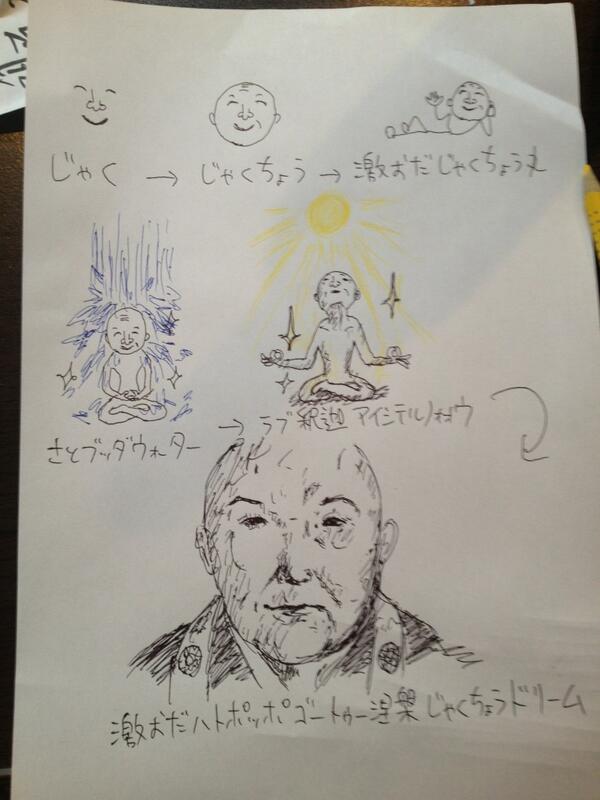 じゃく → じゃくちょう → 激おだじゃくちょう丸
さとブッダウォーター → ラブ釈迦 アイシテルノォォウ
激おだハトポッポゴートゥー涅槃じゃくちょうドリーム